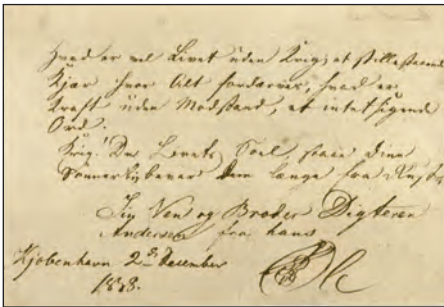 Hvad er vel Livet uden Krig; et stillestaaende
Kjær hvor Alt fordærves, hvad er
Kraft uden Modstand, et intetsigende
Ord.
Krig! Du Livets Soel, staae dine
lange fra
Sin Ven og Broder Digteren
Andersen fra hans
Kjøbenhavn 2 December
1838.